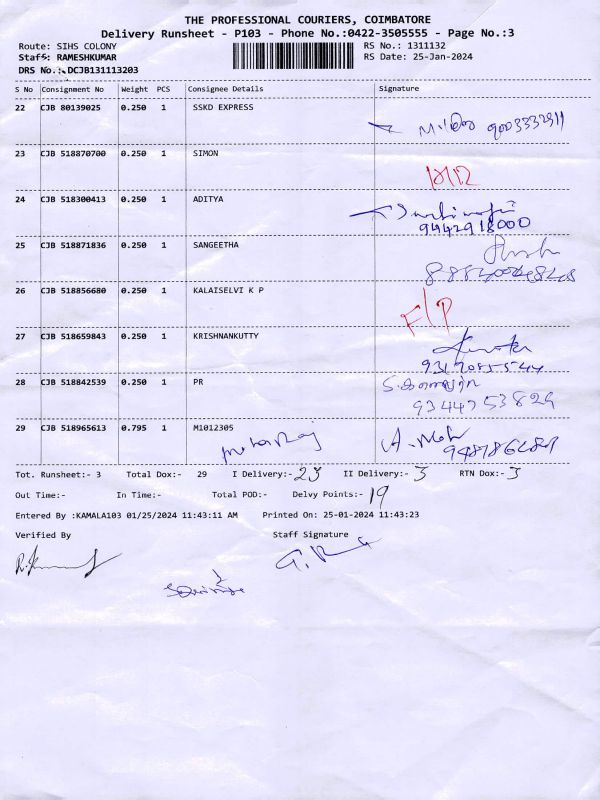 THE PROFESSIONAL COURIERS, COIMBATORE
Delivery Runsheet - P103 - Phone No.:0422-3505555 - Page No.:3
Route: SIHS COLONY RS No.: 1311132
Staff: RAMESHKUMAR RS Date: 25-Jan-2024
DRS No.:-DCJB131113203
S No Consignment No Weight PCS Consignee Details Signature
22 CJB 80139025 0.250 1 SSKD EXPRESS 9003332911
23 CJB 518870700 0.250 1 SIMON
24 CJB 518300413 0.250 1 ADITYA
9442918000
25 CJB 518871836 0.250 1 SANGEETHA
26 CJB 518856680 0.250 1 KALAISELVI K P F/P
27 CJB 518659843 0.250 1 KRISHNANKUTTY
28 CJB 518842539 0.250 1 PR
9344753829
29 CJB 518965613 0.795 1 M1012305
Tot. Runsheet:- 3 Total Dox:- 29 I Delivery:- 23 II Delivery:- 3 RTN Dox:- 3
Out Time:- In Time:- Total POD:- Delvy Points:- 19
Entered By :KAMALA103 01/25/2024 11:43:11 AM Printed On: 25-01-2024 11:43:23
Verified By Staff Signature